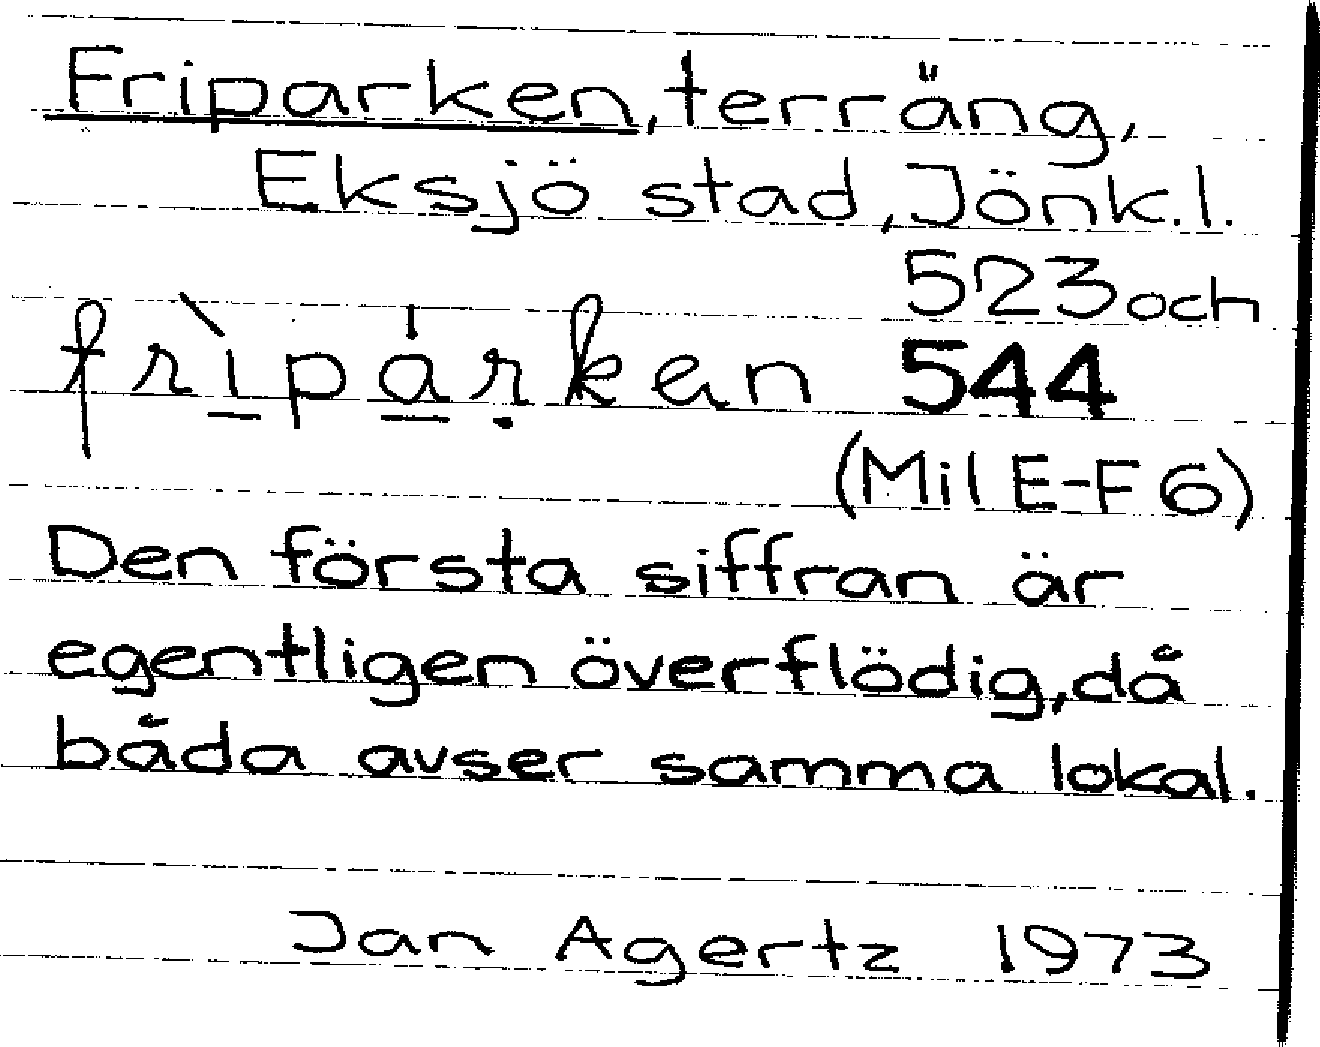 Friparken, terräng,
Eksjö stad, Jönk.l.
523 och
frìpárken 544
(Mil E-F 6)
Den första siffran är
egentligen överflödig, då
båda avser samma lokal.
Jan Agertz 1973